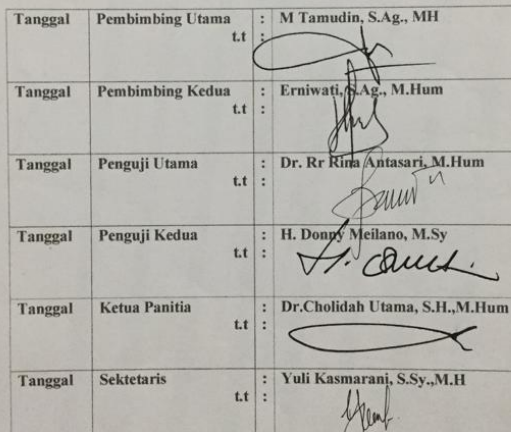 Tanggal Pembimbing Utama : M Tamudin, S.Ag., MH
t.t :
Tanggal Pembimbing Kedua : Erniwati, S.Ag., M.Hum
t.t :
Tanggal Penguji Utama : Dr. Rr Rina Antasari, M.Hum
t.t :
Tanggal Penguji Kedua : H. Donny Meilano, M.Sy
t.t :
Tanggal Ketua Panitia : Dr.Cholidah Utama, S.H.,M.Hum
t.t :
Tanggal Sektetaris : Yuli Kasmarani, S.Sy.,M.H
t.t :